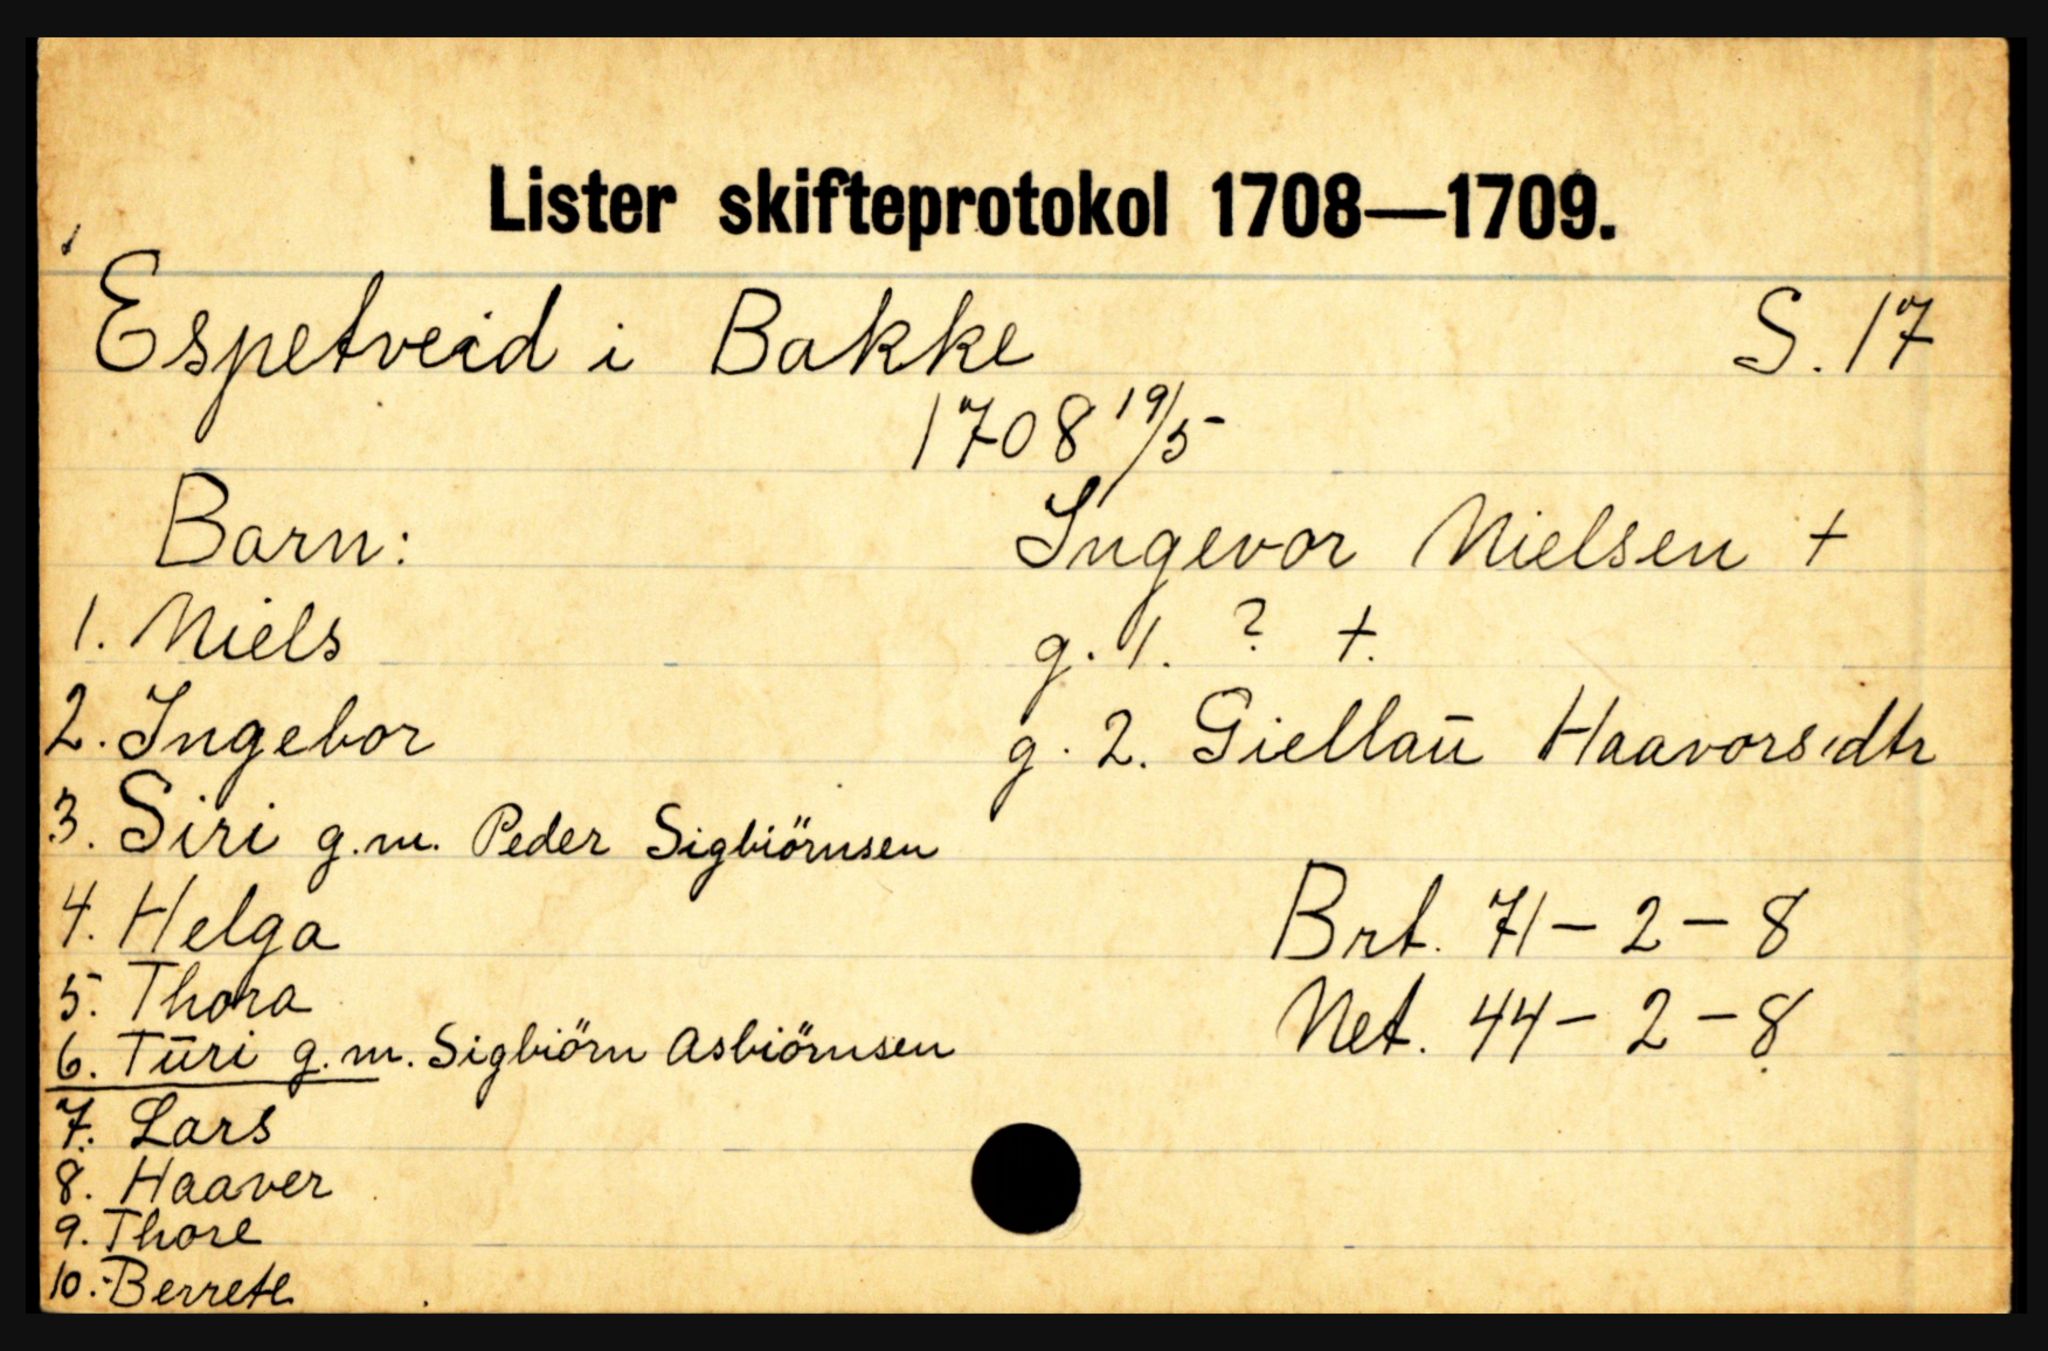 Lister skifteprotokol 1708—1709.
Espetveid i Bakke S. 17
1708 19/5
Barn: Ingevor Nielsen +
1. Niels g. 1. ? +.
2. Ingebor g. 2. Giellaū Haavorsdtr
3. Siri g.m. Peder Sigbiörnsen
4. Helga Brt. 71 – 2 – 8
5. Thora Net. 44 – 2 – 8
6. Tūri g.m. Sigbiörn Asbiörnsen
7. Lars
8. Haaver
9. Thore
10. Berrete